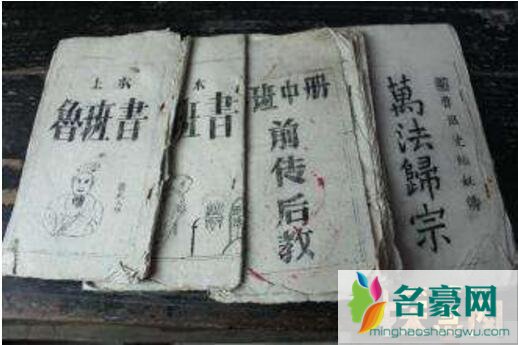 上水
魯班書
班書
班中册
前传后教
萬法歸宗
名豪网
minghaoshangwu.com